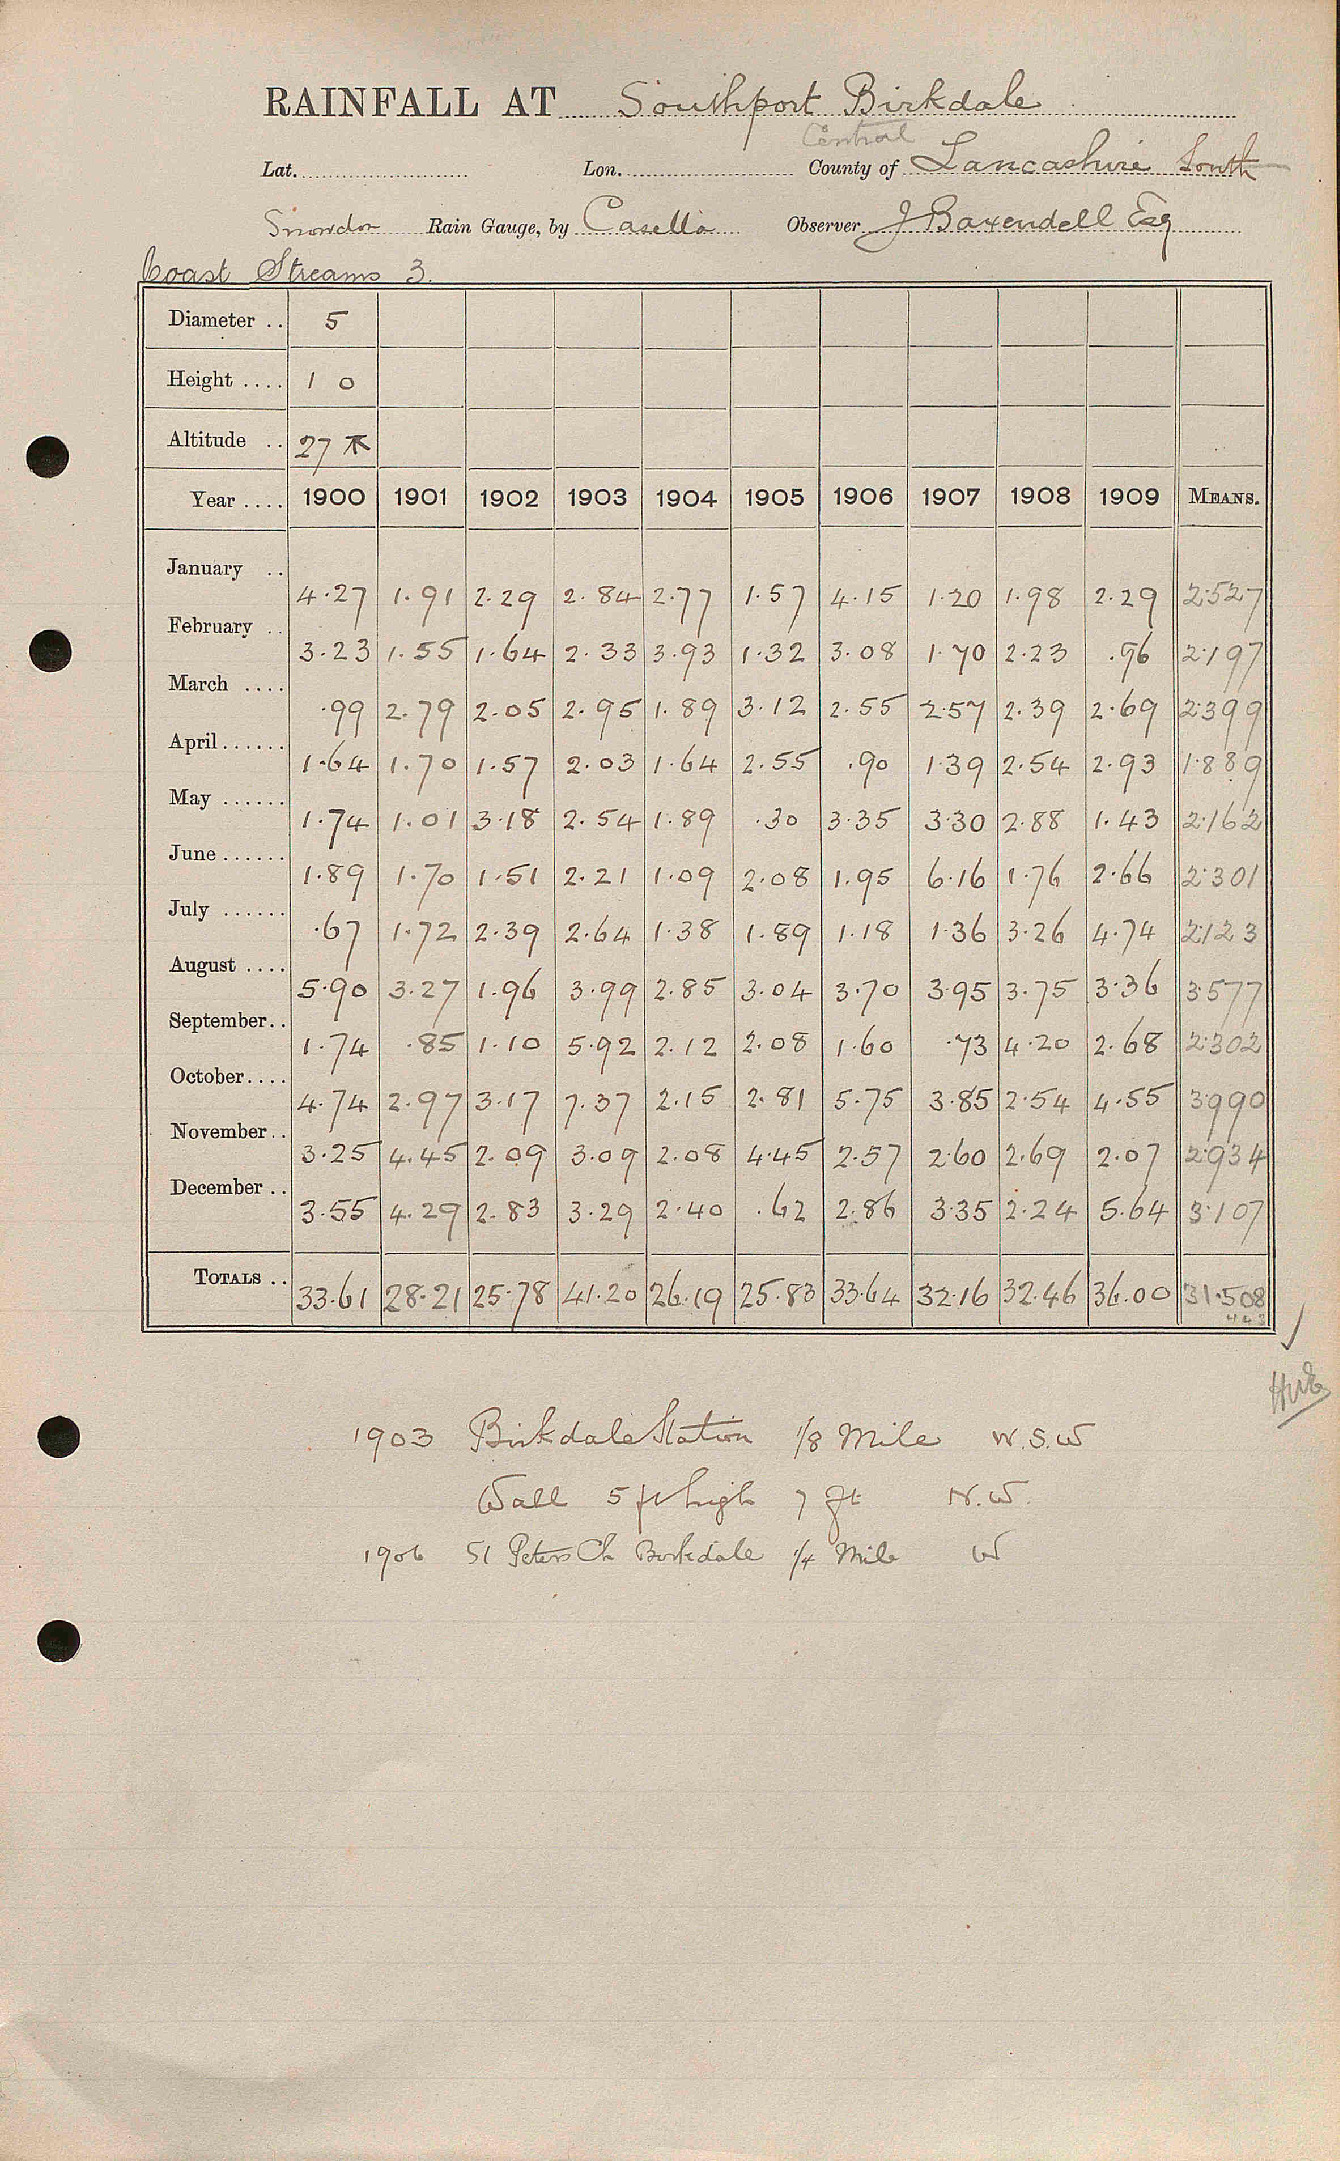 RAINFALL AT Southport Birkdale
Central
Lat. Lon. County of Lancashire South
Snowdon Rain Gauge, by Casella Observer J Baxendell Esq
Coast Streams 3.
Diameter .. 5
Height .... 1 0
Altitude .. 27
Year .... 1900 1901 1902 1903 1904 1905 1906 1907 1908 1909 MEANS.
January .. 4.27 1.91 2.29 2.84 2.77 1.57 4.15 1.20 1.98 2.29 2.527
February .. 3.23 1.55 1.64 2.33 3.93 1.32 3.08 1.70 2.23 .96 2.197
March .... .99 2.79 2.05 2.95 1.89 3.12 2.55 2.57 2.39 2.69 2.399
April ...... 1.64 1.70 1.57 2.03 1.64 2.55 .90 1.39 2.54 2.93 1.889
May ...... 1.74 1.01 3.18 2.54 1.89 .30 3.35 3.30 2.88 1.43 2.162
June ...... 1.89 1.70 1.51 2.21 1.09 2.08 1.95 6.16 1.76 2.66 2.301
July ...... .67 1.72 2.39 2.64 1.38 1.89 1.18 1.36 3.26 4.74 2.123
August .... 5.90 3.27 1.96 3.99 2.85 3.04 3.70 3.95 3.75 3.36 3.577
September.. 1.74 .85 1.10 5.92 2.12 2.08 1.60 .73 4.20 2.68 2.302
October.... 4.74 2.97 3.17 7.37 2.15 2.81 5.75 3.85 2.54 4.55 3.990
November.. 3.25 4.45 2.09 3.09 2.08 4.45 2.57 2.60 2.69 2.07 2.934
December .. 3.55 4.29 2.83 3.29 2.40 .62 2.86 3.35 2.24 5.64 3.107
TOTALS .. 33.61 28.21 25.78 41.20 26.19 25.83 33.64 32.16 32.46 36.00 31.508
1903 Birkdale Station 1/8 Mile W.S.W
Wall 5 ft high 7 ft N.W.
1906 St Peters Ch Birkdale 1/4 Mile W